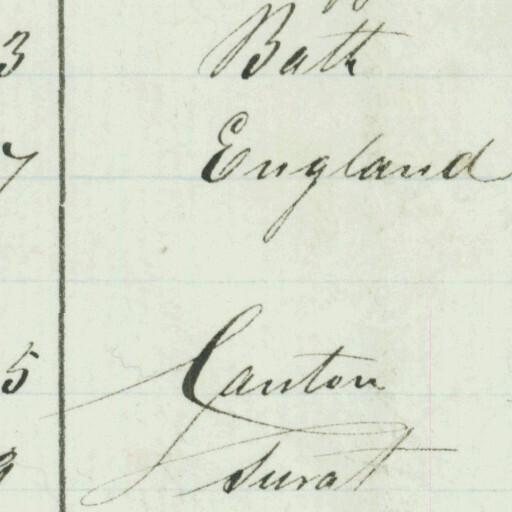 3 Bath
7 England
5 Canton
9 Surat